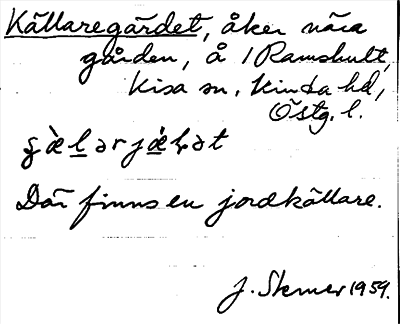 Källaregärdet, åker nära
gården, å 1 Ramshult,
Kisa sn, Kinda hd,
Östg. l.
Där finns en jordkällare.
J. Stemer 1959.